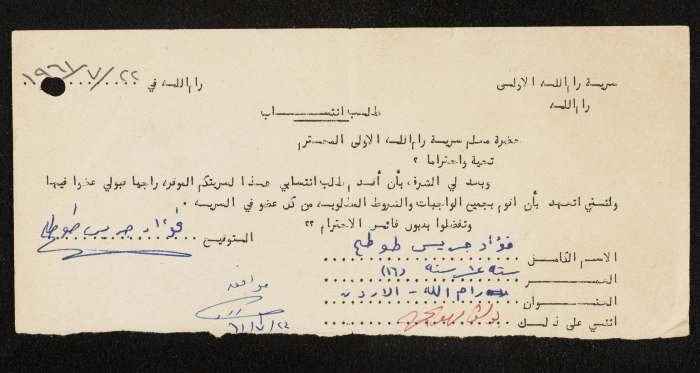 سرية رام الله الاولى
رام الله
رام الله في ٢٢/٧/١٩٦١
طلب انتساب
حضرة معلم سرية رام الله الاولى المحترم
تحية واحتراما ؟
وبعد لي الشرف بأن أقدم طلب انتسابي هذا لسريتكم الموقر، راجيا قبولي عضوا فيها
ولتسني اتعهد بأن اقوم بجميع الواجبات والشروط المطلوبه، من كل عضو في السريه .
وتفضلوا بقبول فائق الاحترام ؟؟
التوقيع فؤاد جريس طوطح
الاسم الكامل فؤاد جريس طوطح
العمر ستة عشر سنه (١٦)
العنوان رام الله - الاردن
اثني على ذلك
موافقه
٦١/٧/٢٤